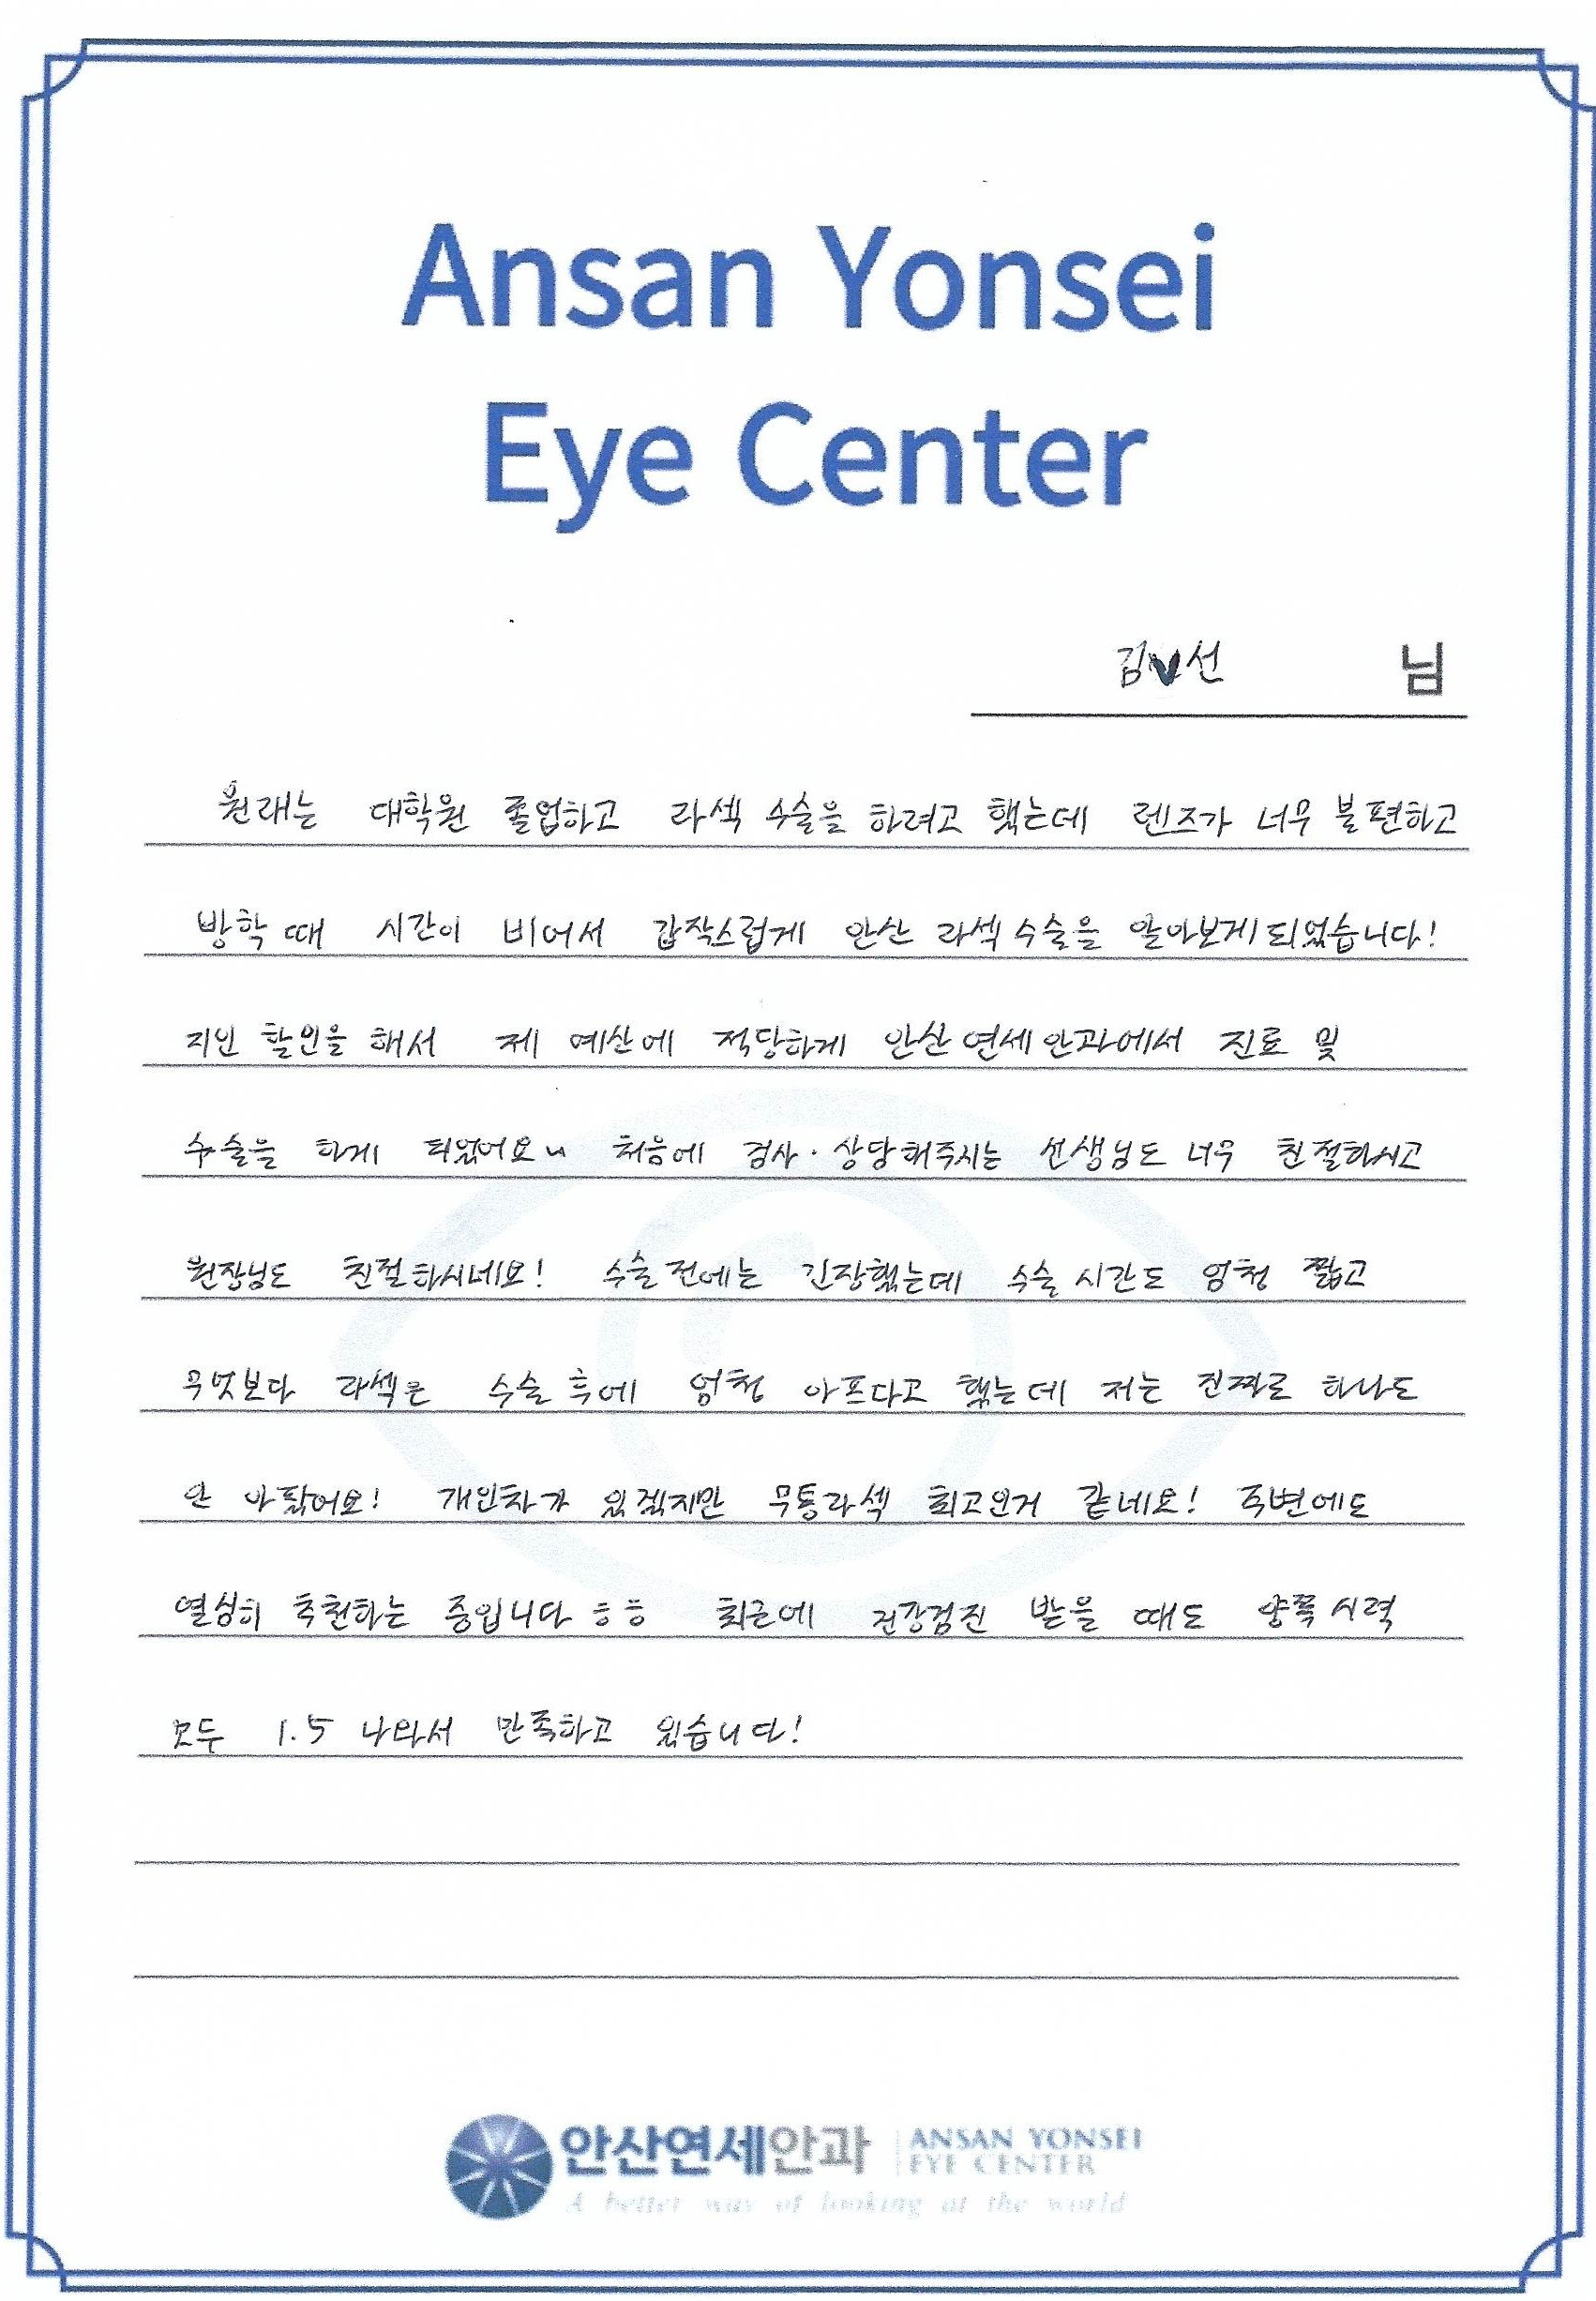 Ansan Yonsei
Eye Center
김 선 님
원래는 대학원 졸업하고 라섹 수술을 하려고 했는데 렌즈가 너무 불편하고
방학 때 시간이 비어서 갑작스럽게 안산 라섹 수술을 알아보게 되었습니다!
지인 할인을 해서 제 예산에 적당하게 안산 연세 안과에서 진료 및
수술을 하게 되었어요 처음에 검사·상담해주시는 선생님도 너무 친절하시고
원장님도 친절하시네요! 수술 전에는 긴장했는데 수술 시간도 엄청 짧고
무엇보다 라섹은 수술 후에 엄청 아프다고 했는데 저는 진짜로 하나도
안 아팠어요! 개인차가 있겠지만 무통라섹 최고인거 같네요! 주변에도
열심히 추천하는 중입니다 ㅎㅎ 최근에 건강검진 받을 때도 양쪽 시력
모두 1.5 나와서 만족하고 있습니다!
안산연세안과 ANSAN YONSEI
EYE CENTER
A better way of looking at the world